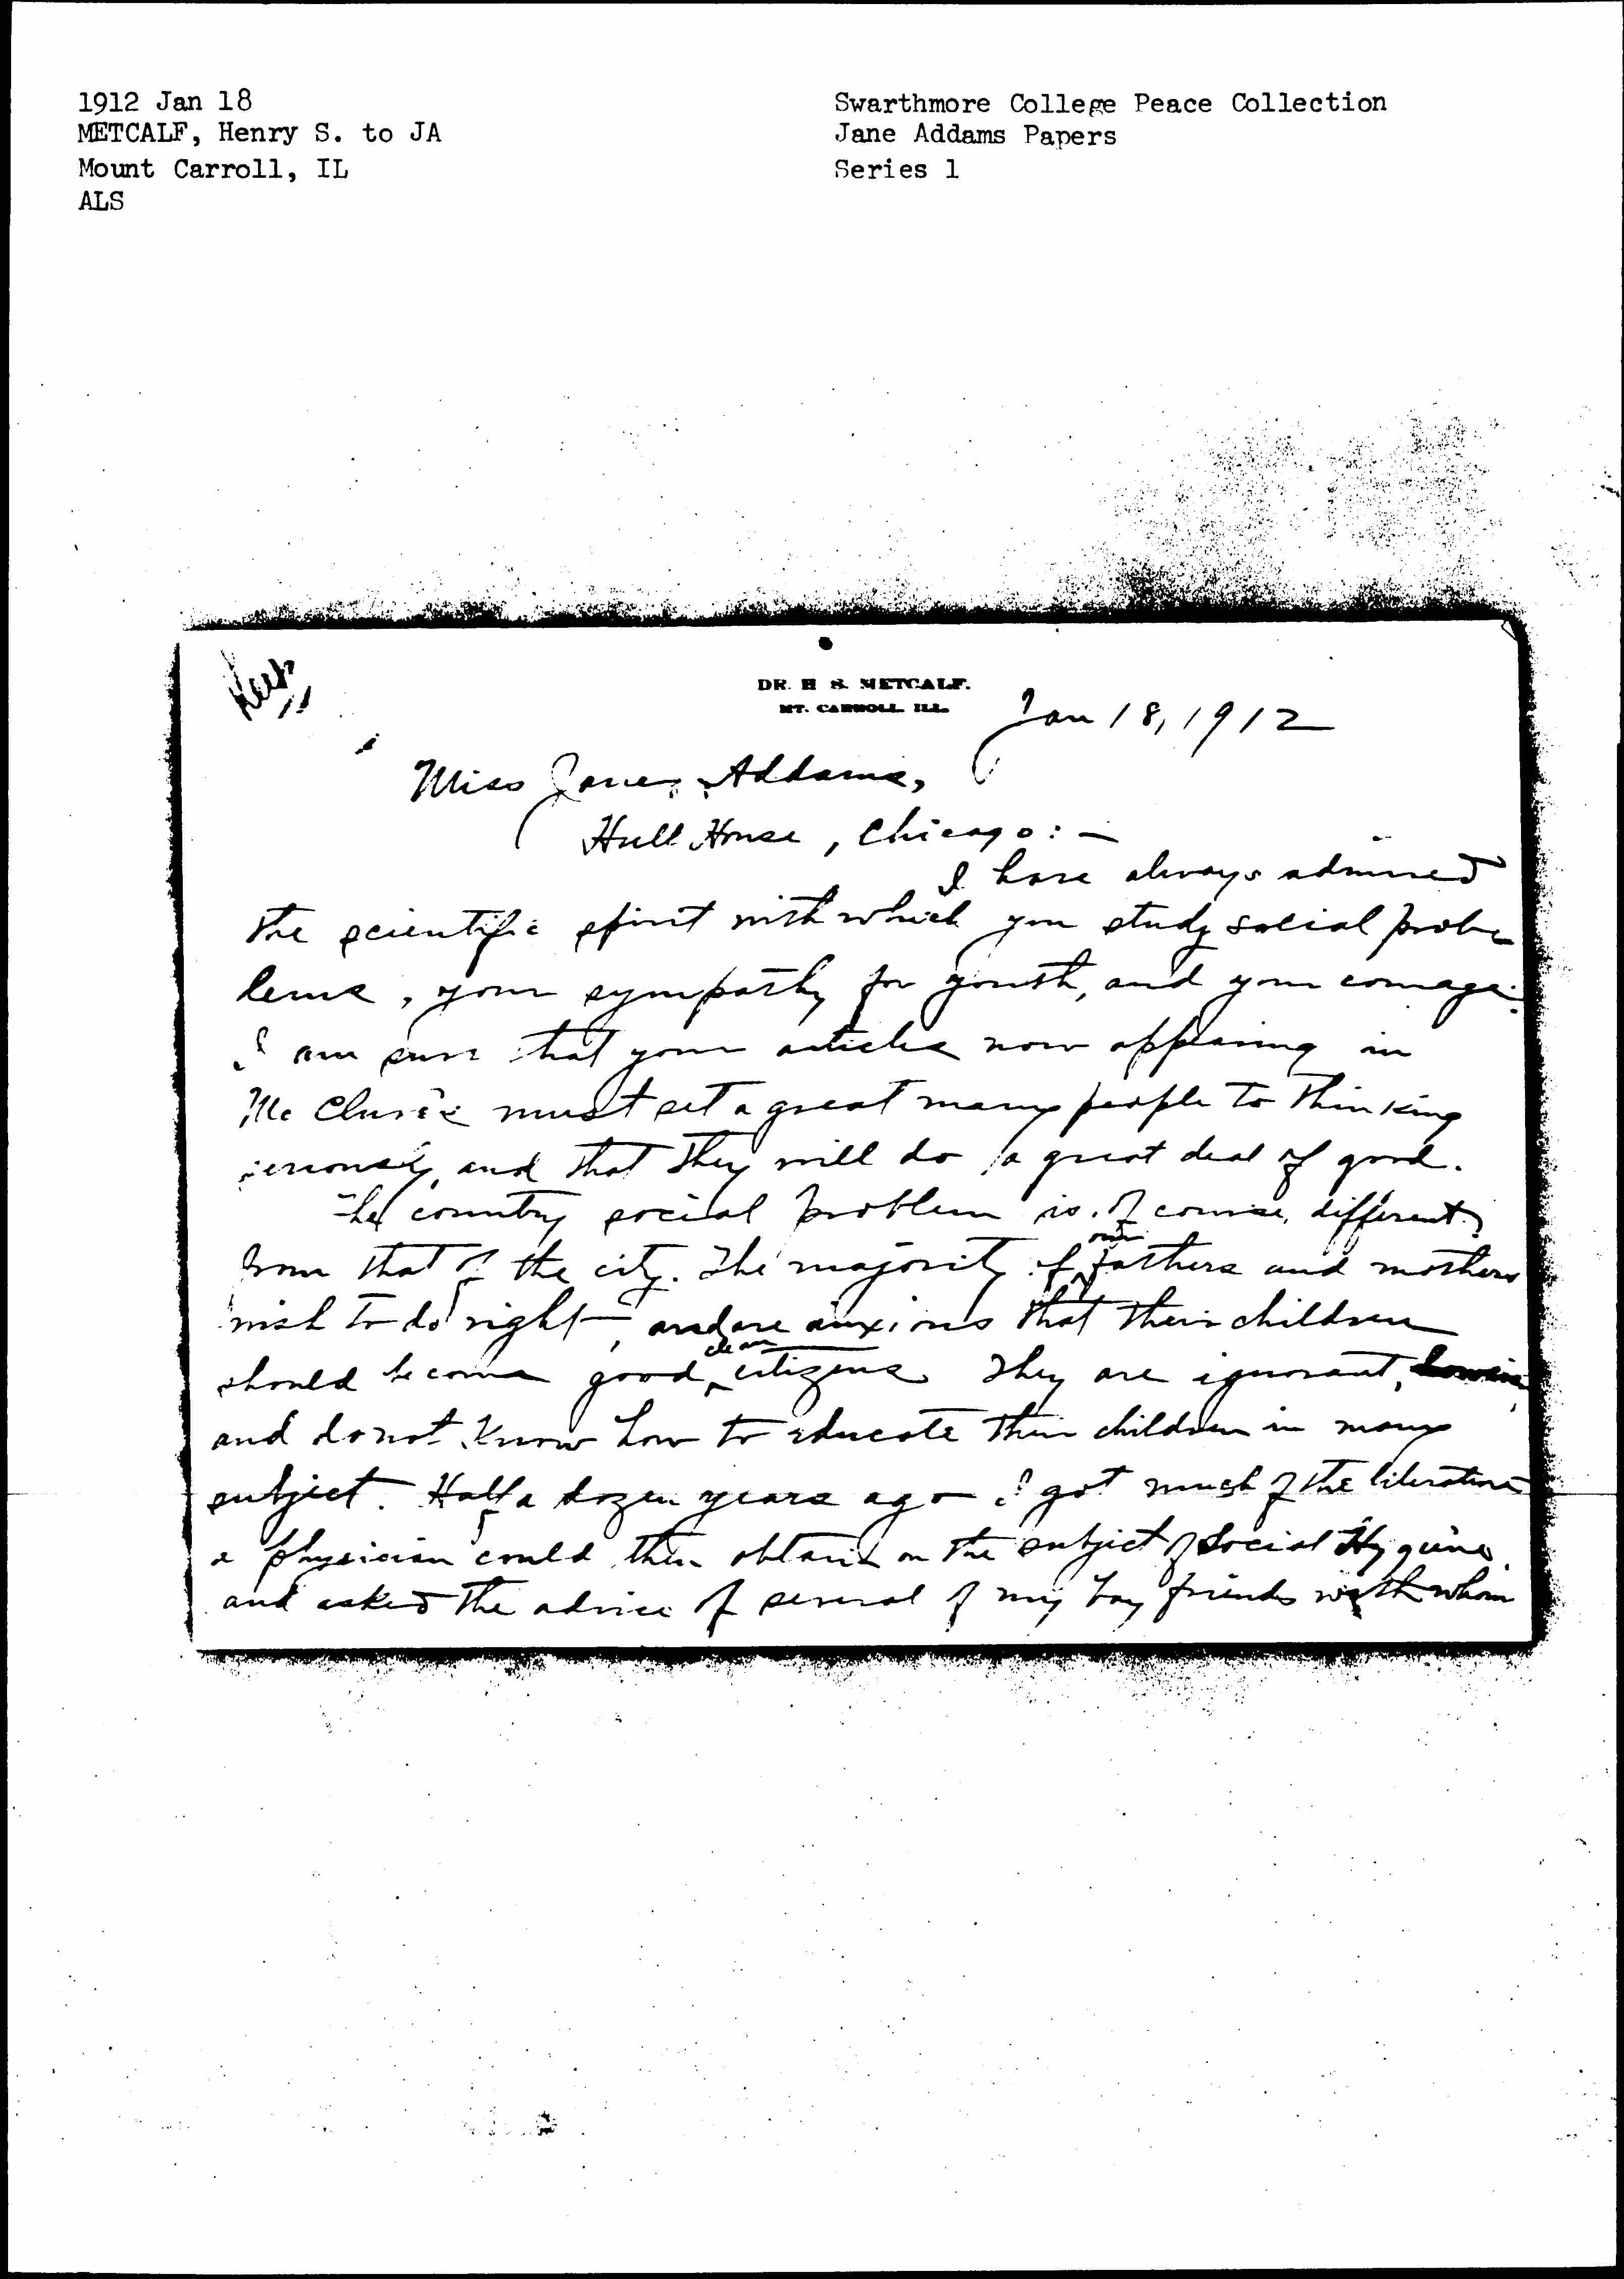 1912 Jan 18
METCALF, Henry S. to JA
Mount Carroll, IL
ALS
Swarthmore College Peace Collection
Jane Addams Papers
Series 1
Keep
DR. H S. METCALF.
MT. CARROLL ILL.
Jan 18, 1912
Miss Jane Addams,
Hull House, Chicago: —
I have always admired
the scientific spirit with which you study social prob-
lems, your sympathy for youth, and your courage.
I am sure that your articles now appearing in
McClure's must set a great many people to thinking
seriously, and that they will do a great deal of good.
The country social problem is, of course, different
from that of the city. The majority of our fathers and mothers
wish to do right, and are anxious that their children
should become good, clean citizens. They are ignorant,
and do not know how to educate their children in many
subject. Half a dozen years ago I got much of the literature
a physician could then obtain on the subject of Social Hygiene,
and asked the advice of several of my boy friends with whom